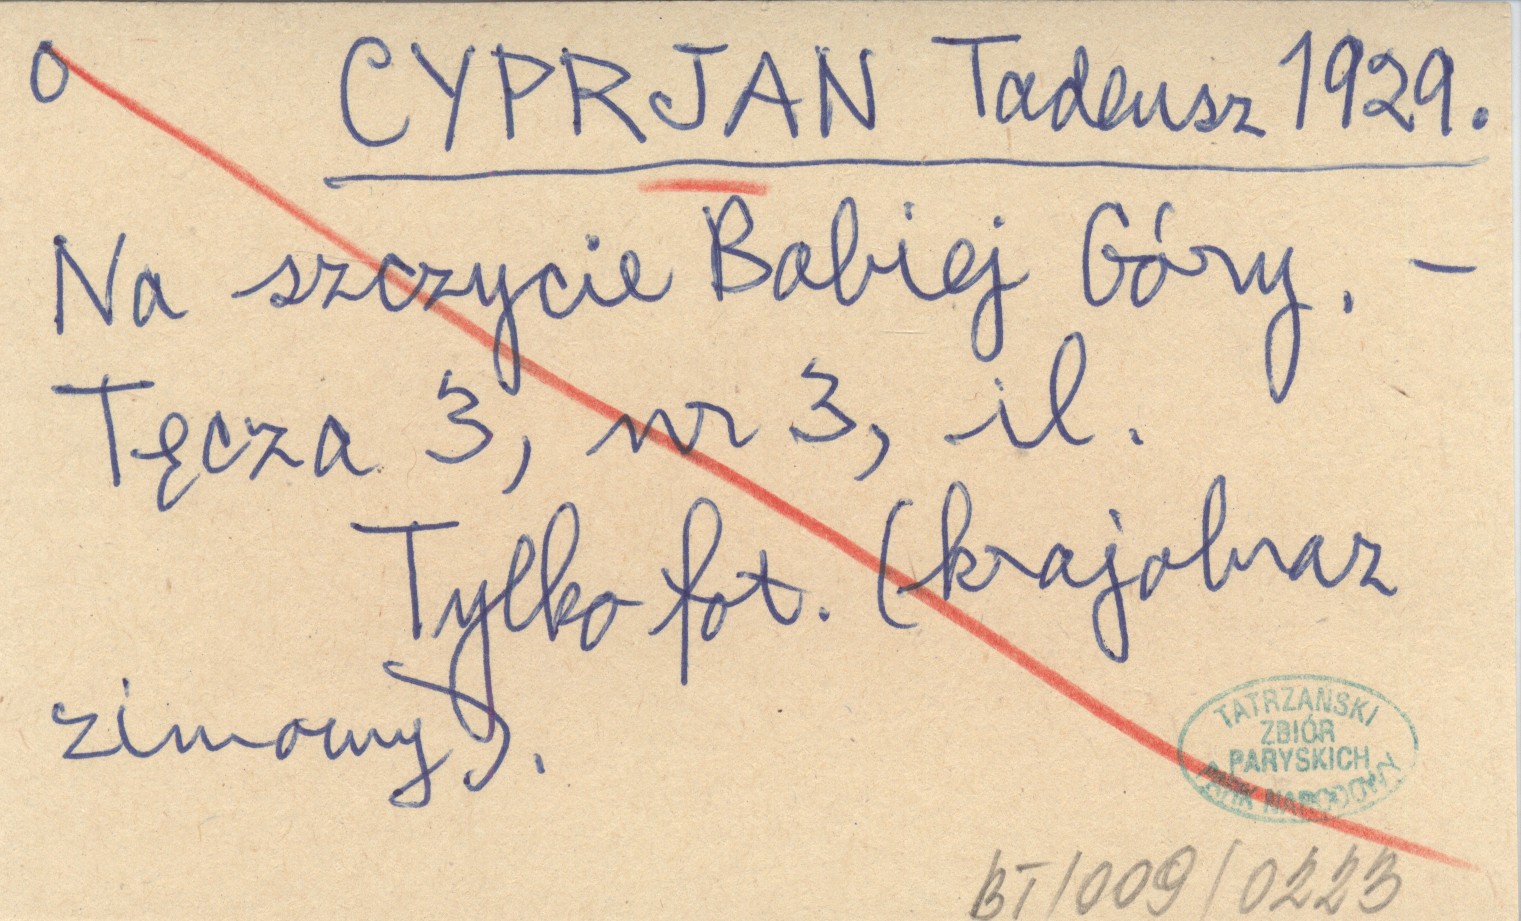 o CYPRJAN Tadeusz 1929.
Na szczycie Babiej Góry. —
Tęcza 3, nr 3, il.
Tylko fot. (krajobraz
zimowy).
TATRZAŃSKI
ZBIÓR
PARYSKICH
PARK NARODOWY
BT/009/0223